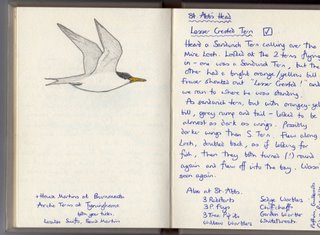 + House Martins at Burnmouth
Arctic Terns at Tyninghame
with yar tides.
Louise Swifts, Sand Martin
St. Abb's Head
Lesser Crested Tern ☑
Heard a Sandwich Tern calling over the
Mire Loch. Looked at the 2 terns flying
in - one was a Sandwich Tern, but the
other had a bright orange/yellow bill!
Fraser shouted out 'Lesser Crested!' and
we ran to where he was standing.
As sandwich tern, but with orangey-yellow
bill, grey rump and tail - looked to be
almost as dark as wings. Possibly
darker wings than S. Tern. Flew along
Loch, doubled back, as if looking for
fish, then they both turned (!) round
again and flew off into the bay. Wasn't
seen again.
Also at St. Abbs.
3 Redstarts
3 P. Flys
3 Tree Pipits
Willow Warblers
Sedge Warblers
Chiffchaffs
Garden Warbler
Whitethroats